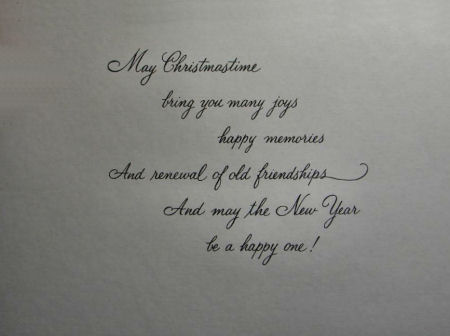 May Christmastime
bring you many joys
happy memories
And renewal of old friendships
And may the New Year
be a happy one!